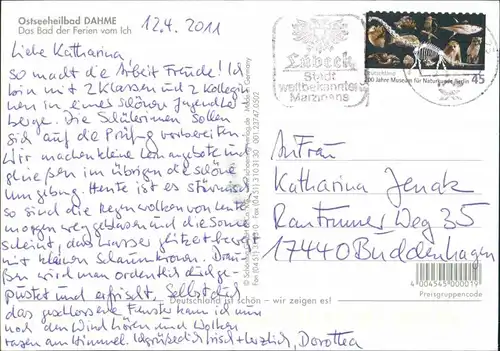 Ostseeheilbad DAHME
Das Bad der Ferien vom Ich
12.4.2011
Liebe Katharina
so macht die Arbeit Freude! Ich
bin mit 2 Klassen und 2 Kollegin-
nen in einer schönen Jugendher-
berge. Die Schülerinnen sollen
sich auf die Prüfung vorbereiten.
Wir machen kleine Lernangebote und
genießen im übrigen die schöne
Umgebung. Heute ist es stürmisch
so sind die Regenwolken von heute
morgen weggeblasen und die Sonne
scheint, das Wasser glitzert bewegt
mit kleinen Schaumkronen. Drau-
ßen wird man ordentlich durchge-
pustet und erfrischt. Selbst durch
das geschlossene Fenster kann ich nun
noch den Wind hören und Wolken
rasen am Himmel. frisch + herzlich, Dorothea
Lübeck
Stadt
weltbekannten
Marzipans
Deutschland
200 Jahre Museum für Naturkunde Berlin
45
An Frau
Katharina Jenak
Rantrumer Weg 35
17440 Buddenhagen
Made in Germany
001 23747 0502
Fax (04 51) 3 10 31 30
Deutschland ist schön – wir zeigen es!
4 004545 000019
Preisgruppencode